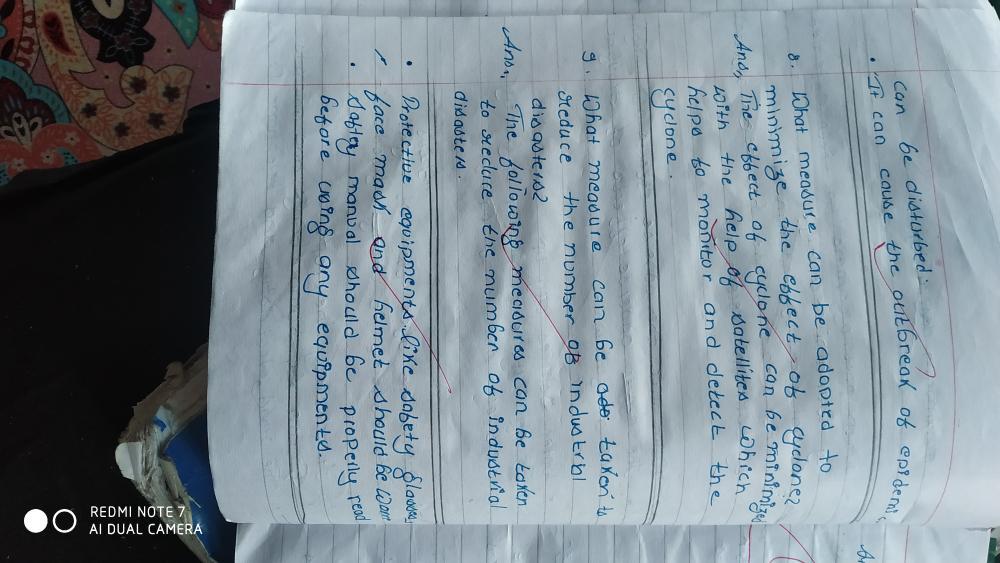 can be disturbed.
• It can cause the outbreak of epidemic
8. What measure can be adopted to
minimize the effect of cyclone?
Ans, The effect of cyclone can be minimized
with the help of satellites which
helps to monitor and detect the
cyclone.
9. What measure can be taken to
reduce the number of industrial
disasters?
Ans, The following measures can be taken
to reduce the number of industrial
disasters.
• Protective equipments like safety glasses,
face mask and helmet should be worn
• Safety manual should be properly read
before using any equipments.
REDMI NOTE 7
AI DUAL CAMERA